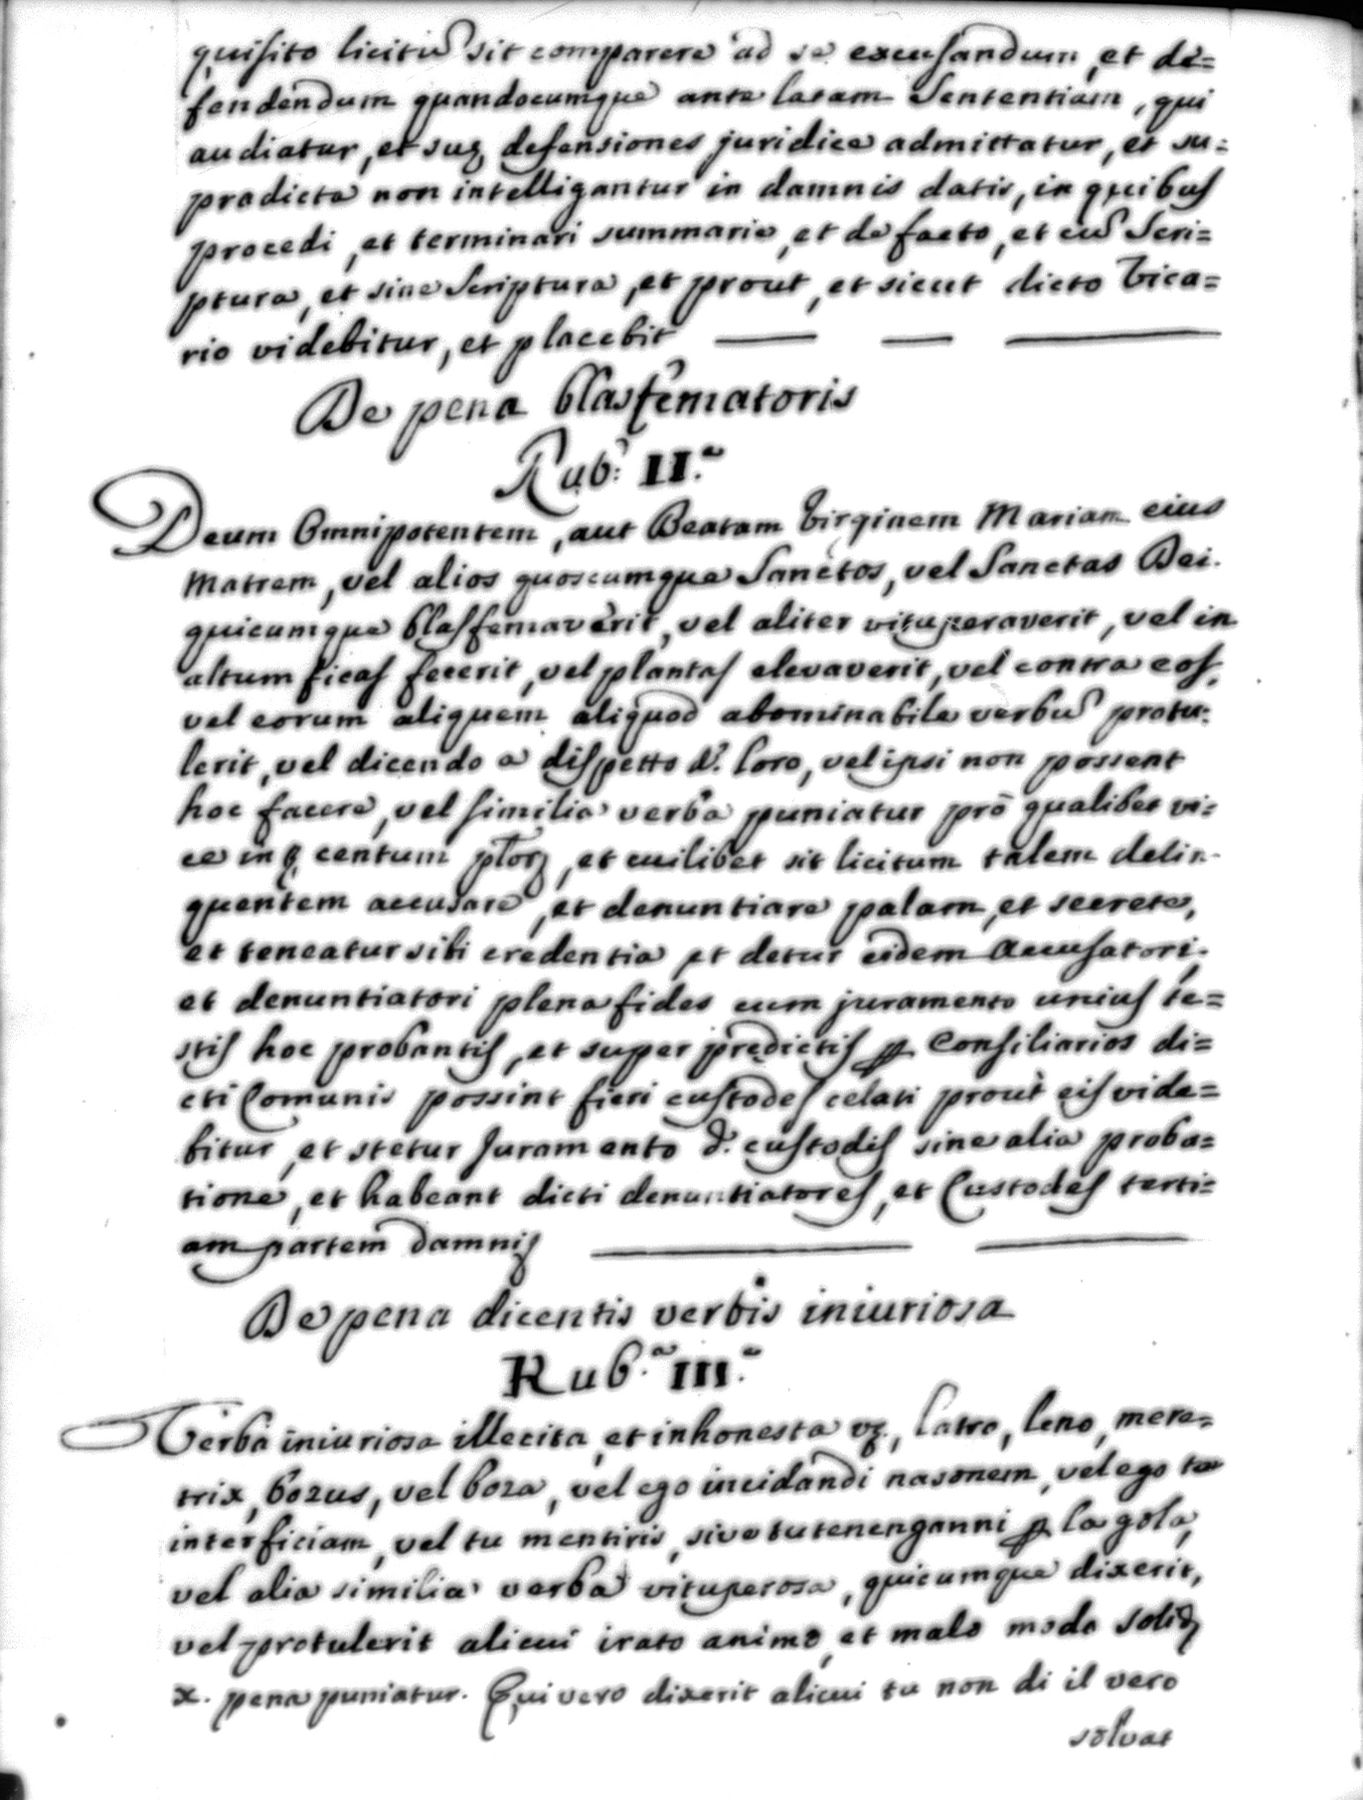 quisito licitũ sit comparere ad se excusandum, et de=
fendendum quandocumque ante latam Sententiam, qui
audiatur, et suę defensiones juridice admittatur, et su=
pradicta non intelligantur in damnis datis, in quibus
procedi, et terminari summarie, et de facto, et cũ Scri=
ptura, et sine Scriptura, et prout, et sicut dicto Vica=
rio videbitur, et placebit
De pena blasfematoris
Rub: II.a
Deum Omnipotentem, aut Beatam Virginem Mariam eius
Matrem, vel alios quoscumque Sanctos, vel Sanctas Dei.
quicumque blasfemaverit, vel aliter vituperaverit, vel in
altum ficas fecerit, vel plantas elevaverit, vel contra eos,
vel eorum aliquem aliquod abominabile verbũ protu=
lerit, vel dicendo a dispetto d. loro, vel ipsi non possent
hoc facere, vel similia verba puniatur pro qualibet vi=
ce in centum, et cuilibet sit licitum talem delin-
quentem accusare, et denuntiare palam, et secrete,
et teneatur sibi credentia et detur eidem Accusatori.
et denuntiatori plena fides cum juramento unius te=
stis hoc probantis, et super predictis ꝑ Consiliarios di=
cti Comunis possint fieri custodes celati prout eis vide=
bitur, et stetur Juramento d. custodis sine alia proba=
tione, et habeant dicti denuntiatores, et Custodes terti=
am partem damnis
De pena dicentis verbis iniuriosa
Rub.a III.a
Verba iniuriosa illecita, et inhonesta vz., latro, leno, mere=
trix, bozus, vel boza, vel ego incidandi nasonem, vel ego te
interficiam, vel tu mentiris, sive tu tenenganni ꝑ la gola,
vel alia similia verba vituperosa, quicumque dixerit,
vel protulerit alicui irato animo, et malo modo solid
x. pena puniatur. Qui vero dixerit alicui tu non di il vero
solvat